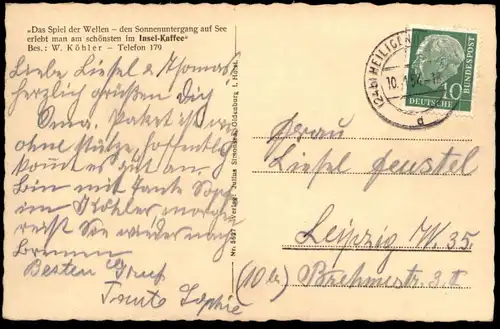 „Das Spiel der Wellen – den Sonnenuntergang auf See
erlebt man am schönsten im Insel-Kaffee“
Bes.: W. Köhler – Telefon 179
Liebe Liesel & Thomas
herzlich grüßen Dich
Oma. Paket ist
ohne Mütze, hoffentlich
kommt es gut an.
Bin mit Tante
im Köhler
reist Sie wieder nach
Bremen
Besten Gruß
Tante Sophie
Nr. 8627 Verlag: Julius Simonsen, Oldenburg i. Holst.
(24b) HEILIGEN
10.
d
DEUTSCHE BUNDESPOST
10
Frau
Liesel Feustel
Leipzig W. 35
(10b) Brehmestr. 3 II